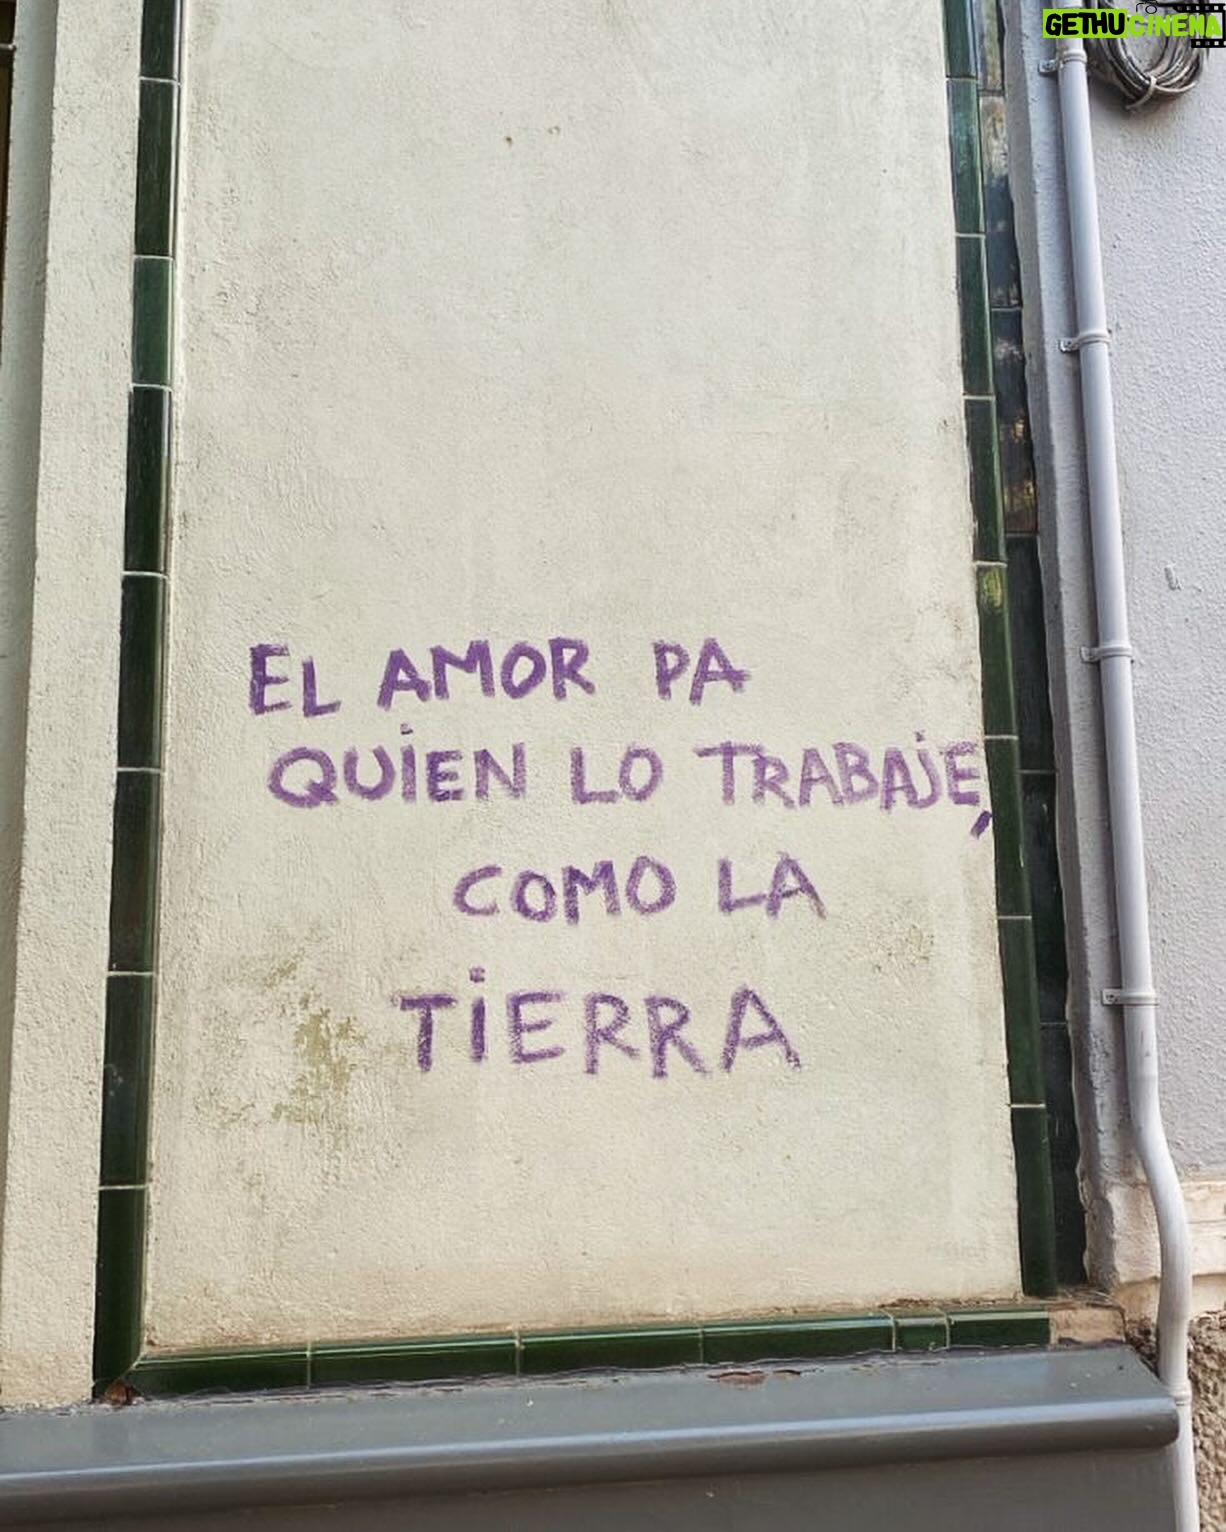 GETHUCINEMA
EL AMOR PA
QUIEN LO TRABAJE,
COMO LA
TIERRA